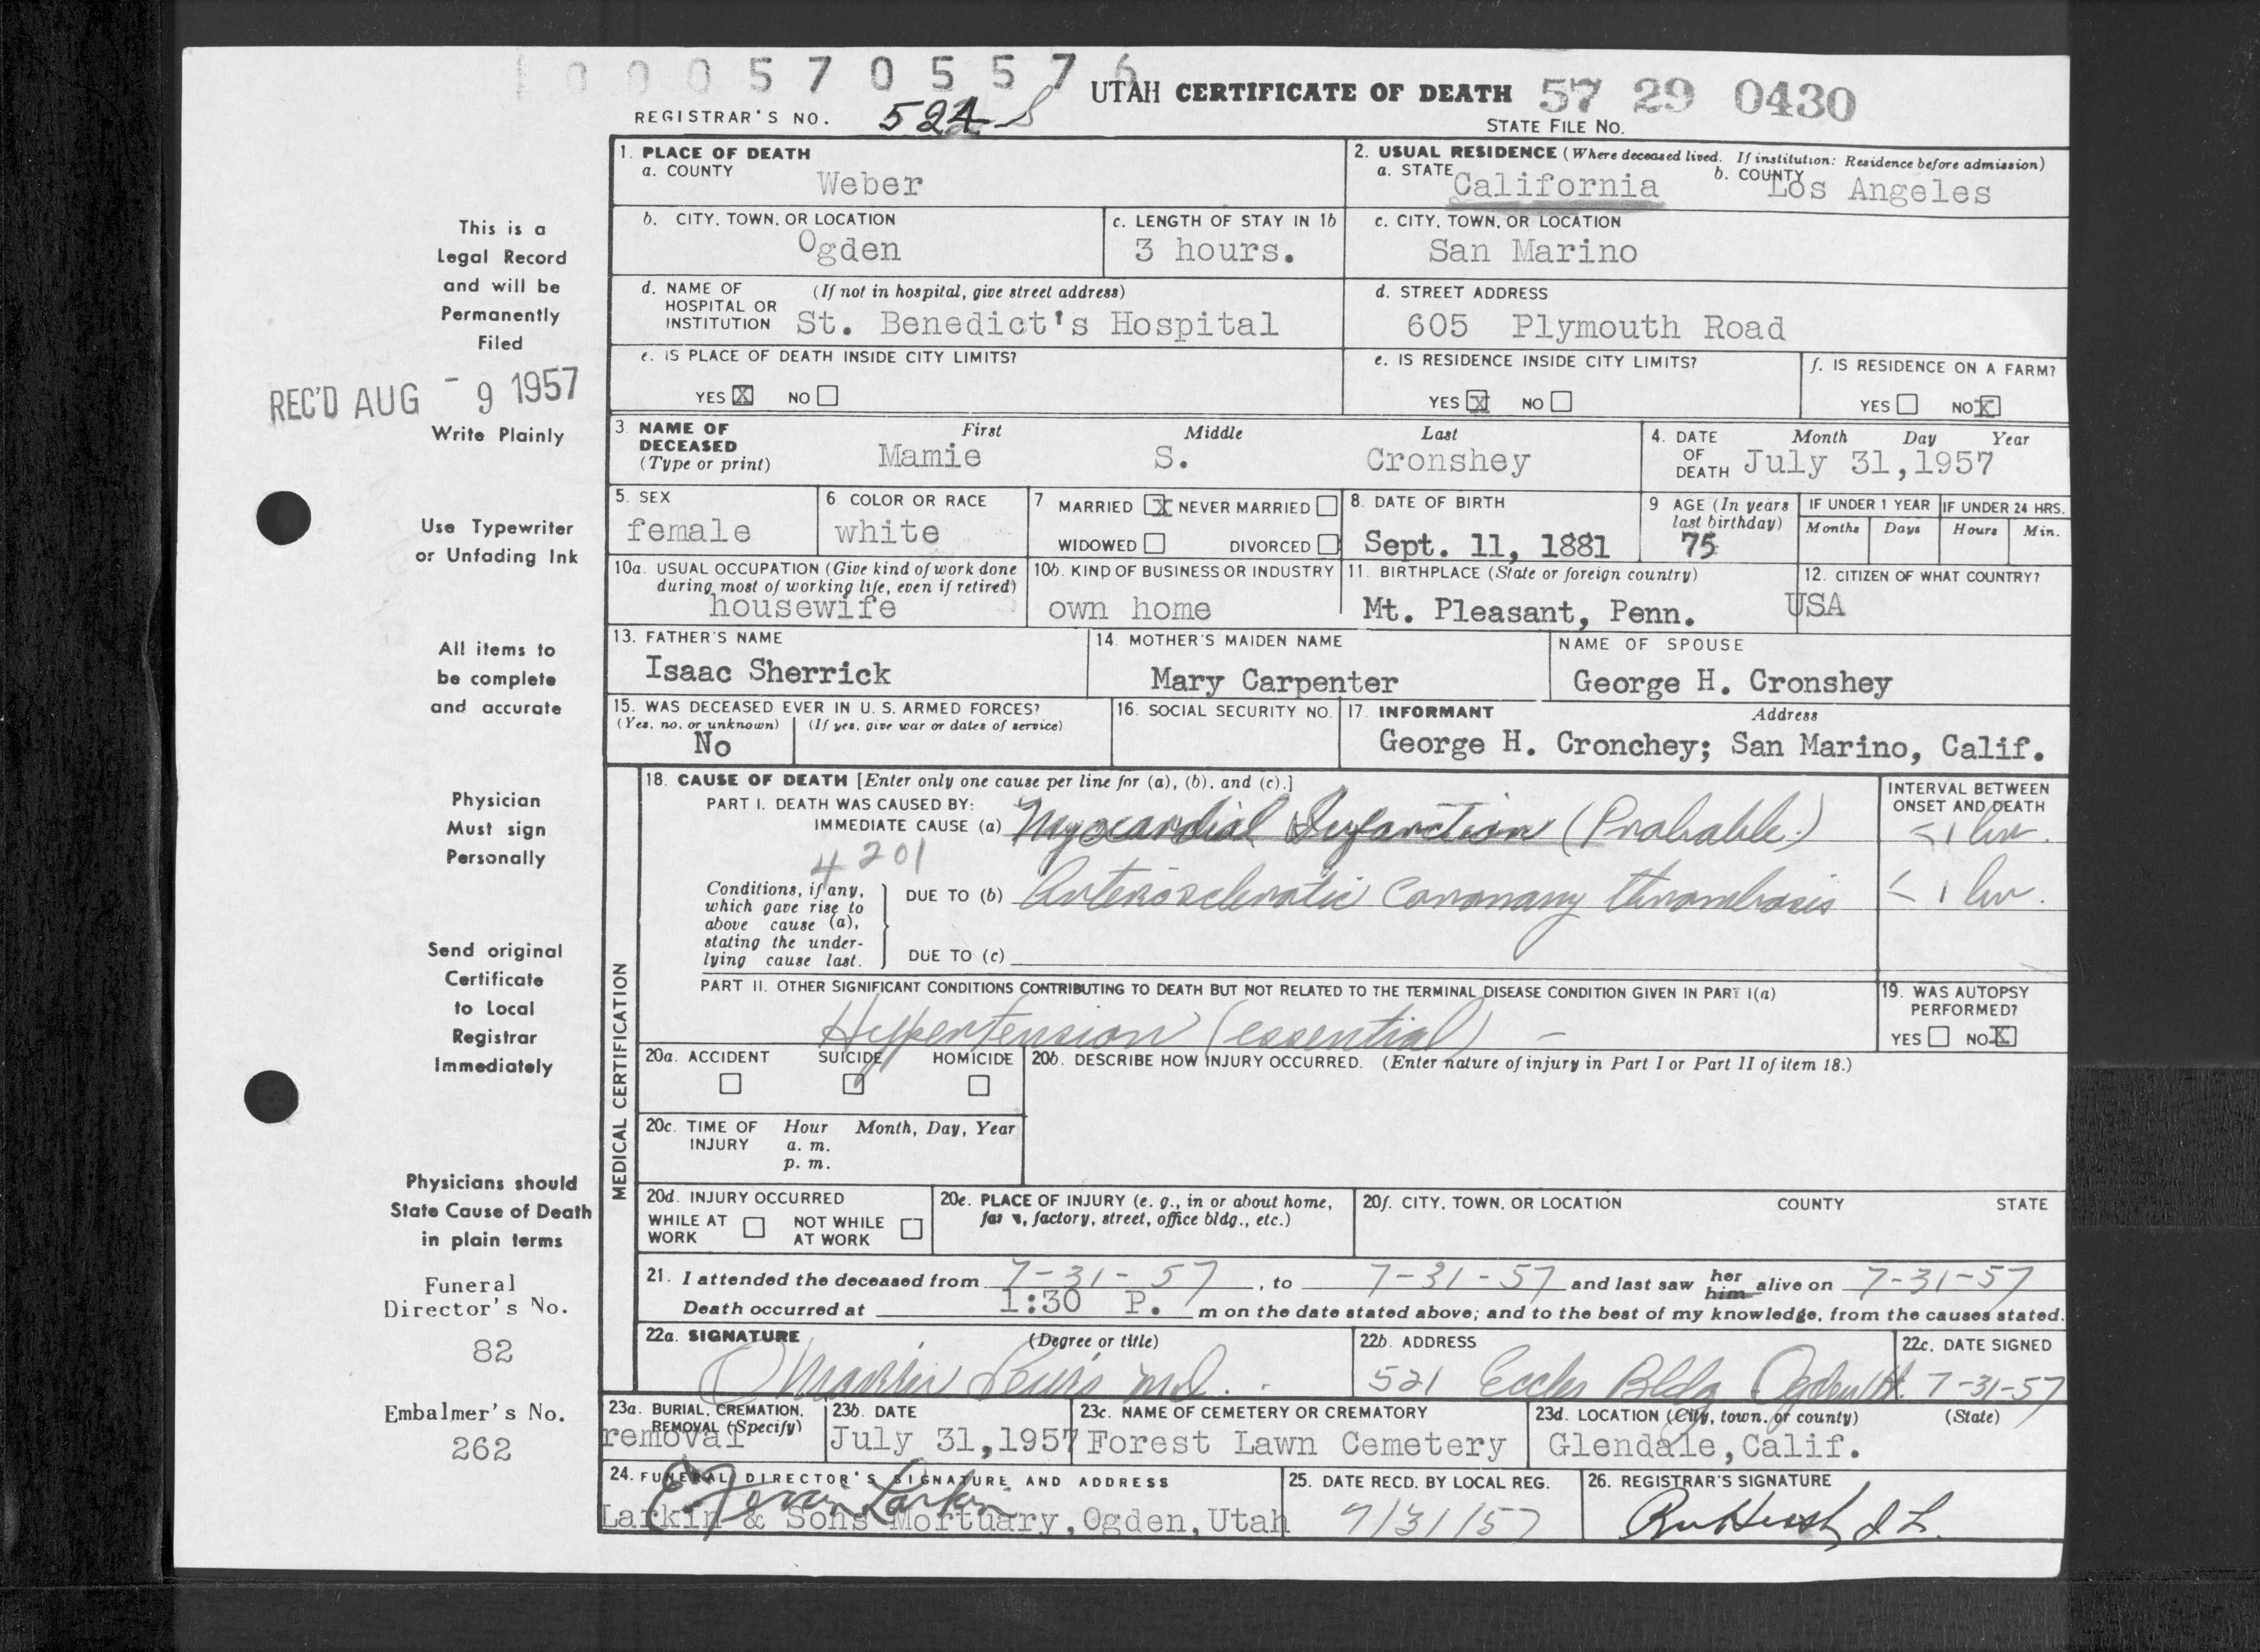 1 0 0 0 5 7 0 5 5 7 6
UTAH CERTIFICATE OF DEATH 57 29 0430
REGISTRAR'S NO. 524
STATE FILE NO.
1. PLACE OF DEATH
a. COUNTY Weber
2. USUAL RESIDENCE (Where deceased lived. If institution: Residence before admission)
a. STATE California b. COUNTY Los Angeles
b. CITY, TOWN, OR LOCATION Ogden
c. LENGTH OF STAY IN 1b 3 hours.
c. CITY, TOWN, OR LOCATION San Marino
d. NAME OF HOSPITAL OR INSTITUTION (If not in hospital, give street address) St. Benedict's Hospital
d. STREET ADDRESS 605 Plymouth Road
e. IS PLACE OF DEATH INSIDE CITY LIMITS?
YES X NO
e. IS RESIDENCE INSIDE CITY LIMITS?
YES X NO
f. IS RESIDENCE ON A FARM?
YES NO X
3. NAME OF DECEASED (Type or print)
First Middle Last
Mamie S. Cronshey
4. DATE OF DEATH Month Day Year
July 31,1957
5. SEX female
6. COLOR OR RACE white
7 MARRIED X NEVER MARRIED
WIDOWED DIVORCED
8. DATE OF BIRTH Sept. 11, 1881
9 AGE (In years last birthday) 75
IF UNDER 1 YEAR Months Days
IF UNDER 24 HRS. Hours Min.
10a. USUAL OCCUPATION (Give kind of work done during most of working life, even if retired) housewife
10b. KIND OF BUSINESS OR INDUSTRY own home
11. BIRTHPLACE (State or foreign country) Mt. Pleasant, Penn.
12. CITIZEN OF WHAT COUNTRY? USA
13. FATHER'S NAME Isaac Sherrick
14. MOTHER'S MAIDEN NAME Mary Carpenter
NAME OF SPOUSE George H. Cronshey
15. WAS DECEASED EVER IN U. S. ARMED FORCES?
(Yes, no, or unknown) (If yes, give war or dates of service)
No
16. SOCIAL SECURITY NO.
17. INFORMANT Address
George H. Cronchey; San Marino, Calif.
MEDICAL CERTIFICATION
18. CAUSE OF DEATH [Enter only one cause per line for (a), (b), and (c).]
INTERVAL BETWEEN ONSET AND DEATH
PART I. DEATH WAS CAUSED BY:
IMMEDIATE CAUSE (a) Myocardial Infarction (Probable) < 1 hr.
4201
Conditions, if any, which gave rise to above cause (a), stating the underlying cause last.
DUE TO (b) Arteriosclerotic Coronary thrombosis < 1 hr.
DUE TO (c)
PART II. OTHER SIGNIFICANT CONDITIONS CONTRIBUTING TO DEATH BUT NOT RELATED TO THE TERMINAL DISEASE CONDITION GIVEN IN PART I(a)
Hypertension (essential) –
19. WAS AUTOPSY PERFORMED?
YES NO X
20a. ACCIDENT SUICIDE HOMICIDE
20b. DESCRIBE HOW INJURY OCCURRED. (Enter nature of injury in Part I or Part II of item 18.)
20c. TIME OF INJURY Hour Month, Day, Year
a. m.
p. m.
20d. INJURY OCCURRED
WHILE AT WORK NOT WHILE AT WORK
20e. PLACE OF INJURY (e. g., in or about home, farm, factory, street, office bldg., etc.)
20f. CITY, TOWN, OR LOCATION COUNTY STATE
21. I attended the deceased from 7-31-57, to 7-31-57 and last saw her him alive on 7-31-57
Death occurred at 1:30 P. m on the date stated above; and to the best of my knowledge, from the causes stated.
22a. SIGNATURE (Degree or title)
md.
22b. ADDRESS
521 Eccles Bldg Ogden Ut.
22c. DATE SIGNED
7-31-57
23a. BURIAL, CREMATION, REMOVAL (Specify) removal
23b. DATE July 31,1957
23c. NAME OF CEMETERY OR CREMATORY Forest Lawn Cemetery
23d. LOCATION (City, town, or county) (State)
Glendale, Calif.
24. FUNERAL DIRECTOR'S SIGNATURE AND ADDRESS
Larkin
Larkin & Sons Mortuary, Ogden, Utah
25. DATE RECD. BY LOCAL REG.
7/31/57
26. REGISTRAR'S SIGNATURE
This is a
Legal Record
and will be
Permanently
Filed
REC'D AUG - 9 1957
Write Plainly
Use Typewriter
or Unfading Ink
All items to
be complete
and accurate
Physician
Must sign
Personally
Send original
Certificate
to Local
Registrar
Immediately
Physicians should
State Cause of Death
in plain terms
Funeral
Director's No.
82
Embalmer's No.
262